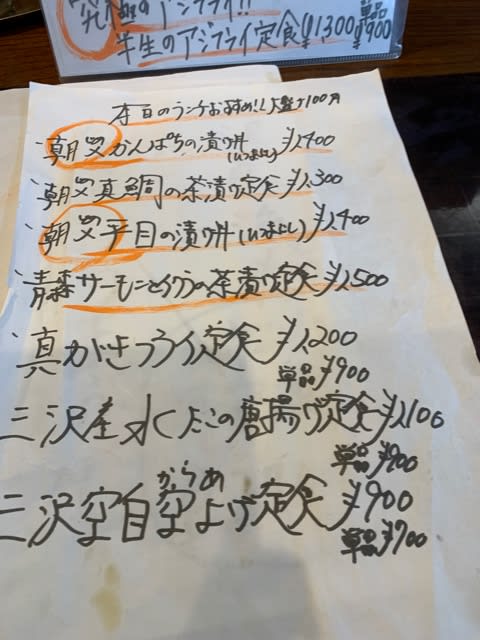 究極のアジフライ!!
半生のアジフライ定食¥1,300 単品¥900
本日のランチおすすめ!! 大盛+100円
朝〆かんぱちの漬け丼(いつまよし) ¥1,400
朝〆真鯛の茶漬け定食¥1,300
朝〆平目の漬け丼(いつまよし) ¥1,400
青森サーモンといくらの茶漬け定食¥1,500
真がきフライ定食¥1,200
単品¥900
三沢産水たこの唐揚げ定食¥1,100
単品¥900
からあ
三沢空自空上げ定食¥900
単品¥700